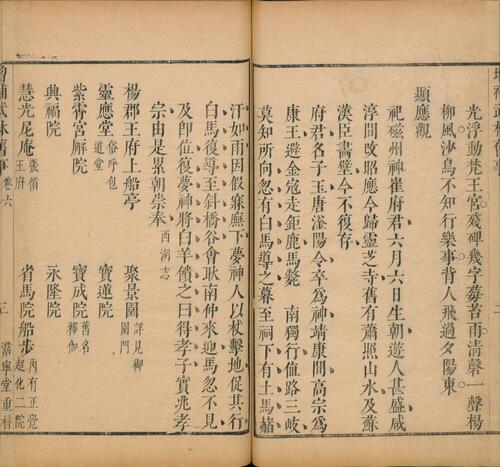 光浮動梵王宮殘碑幾字莓苔雨清磬一聲楊
柳風沙鳥不知行樂事背人飛過夕陽東
顯應觀
祀磁州神崔府君六月六日生朝遊人甚盛咸
淳間改昭應今歸靈芝寺舊有蕭照山水及蘇
漢臣畫壁今不復存
府君名子玉唐滏陽令卒爲神靖康間高宗爲
康王避金寇走鉅鹿馬斃雨獨行値路三岐
莫知所向忽有白馬導之暮至祠下有土馬
汗如雨因假寐廡下夢神人以杖擊地促其行
白馬復導至斜橋谷會耿南仲來迎馬忽不見
及卽位復夢神將白羊饋之曰得孝子實兆孝
宗由是累朝崇奉西湖志
楊郡王府上船亭
聚景園詳見御園門
靈應堂俗呼包道堂
寶蓮院
紫霄宮廨院
寶成院舊名釋伽
興福院
永隆院
慧光尼庵張循王府
省馬院船步內有正覺超化二院
增補武林舊事
卷六
三